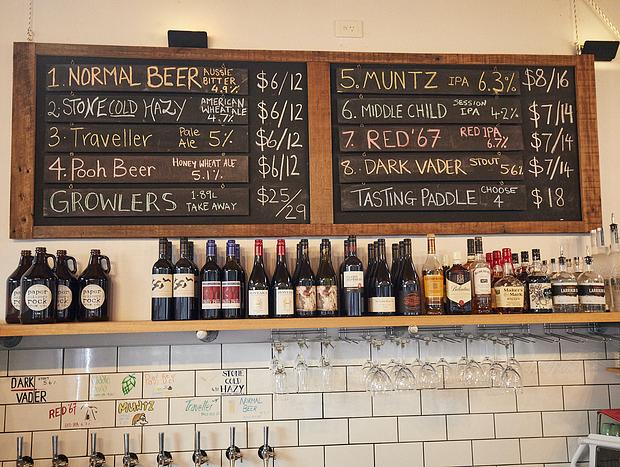 1. NORMAL BEER AUSSIE BITTER 4.9% $6/12
2. STONE COLD HAZY AMERICAN WHEAT ALE 4.7% $6/12
3. Traveller Pale Ale 5% $6/12
4. Pooh Beer HONEY WHEAT ALE 5.1% $6/12
GROWLERS 1·89L TAKE AWAY $25/29
5. MUNTZ IPA 6.3% $8/16
6. MIDDLE CHILD SESSION IPA 4.2% $7/14
7. RED '67 RED IPA 6.7% $7/14
8. DARK VADER STOUT 5.6% $7/14
TASTING PADDLE CHOOSE 4 $18
paper rock
paper rock
Ballantine's
Maker's Mark
LARRIKIN
LARRIKIN
DARK VADER 5.6%
STONE COLD HAZY
RED '67
MUNTZ
Traveller
NORMAL BEER